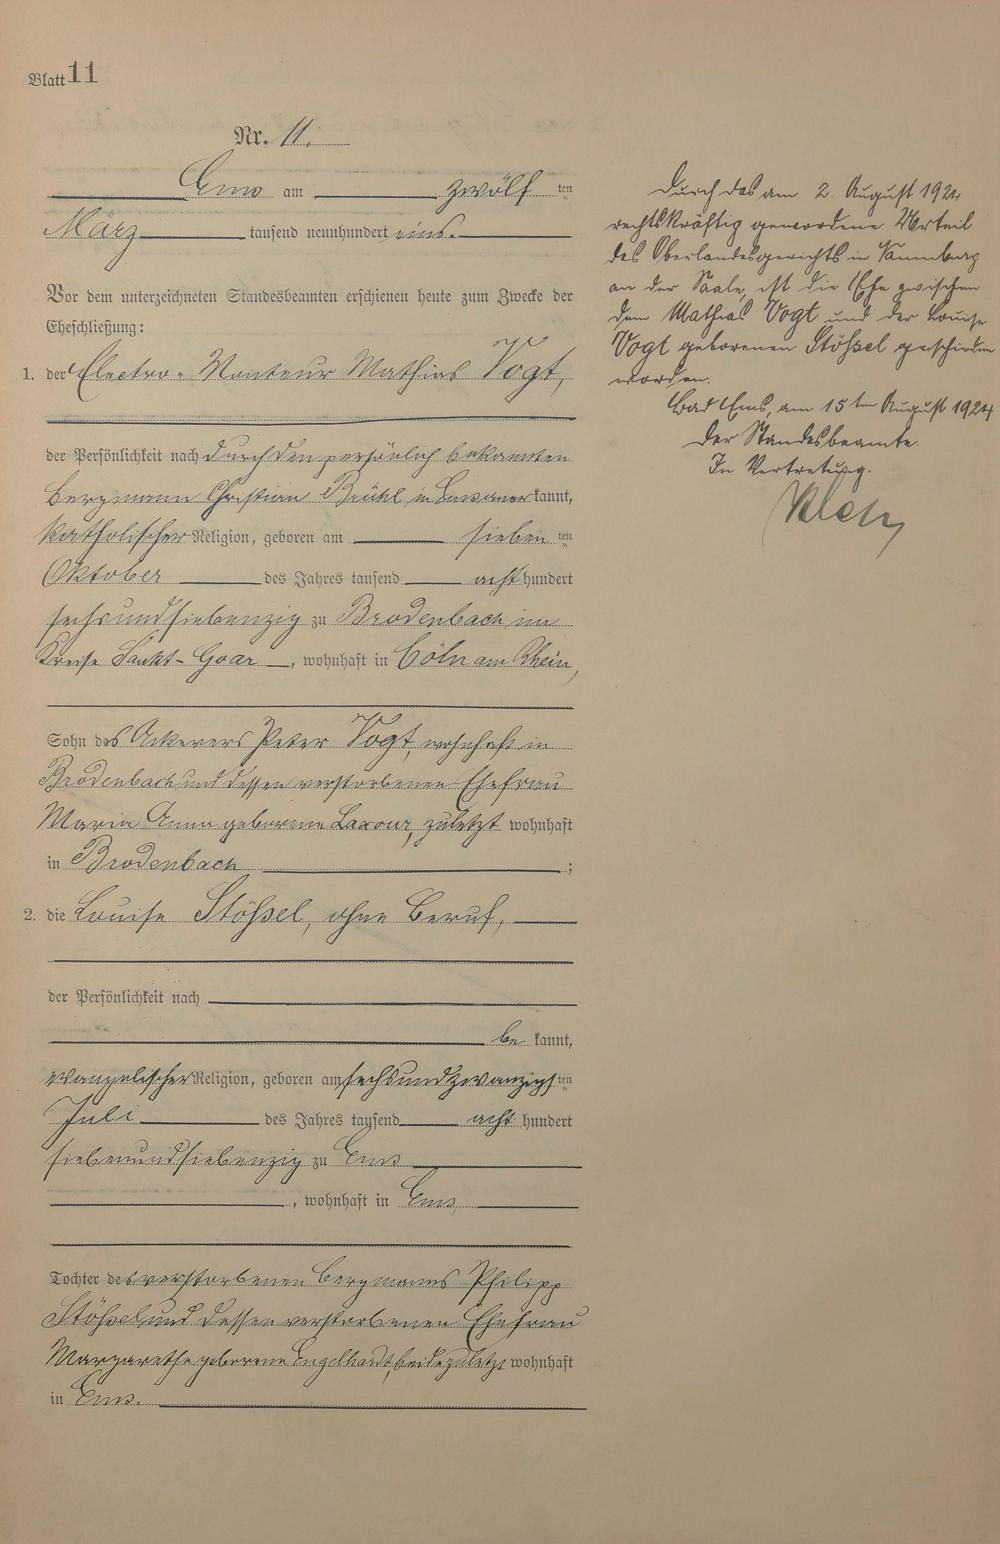 Blatt 11
Nr. 11.
Ems am zwölf ten
März tausend neunhundert eins.
Vor dem unterzeichneten Standesbeamten erschienen heute zum Zwecke der
Eheschließung:
1. der Electro-Monteur Mathias Vogt,
der Persönlichkeit nach durch den persönlich bekannten
Bergmann Christian Brühl in Ems aner kannt,
katholischer Religion, geboren am sieben ten
Oktober des Jahres tausend acht hundert
sechsundsiebenzig zu Brodenbach im
Kreise Sankt-Goar, wohnhaft in Cöln am Rhein,
Sohn des Ackerers Peter Vogt, wohnhaft in
Brodenbach und dessen verstorbenen Ehefrau
Maria Anna geborene zuletzt wohnhaft
in Brodenbach ;
2. die Louise Stößel, ohne Beruf,
der Persönlichkeit nach
be kannt,
evangelischer Religion, geboren am sechsundzwanzigs ten
Juli des Jahres tausend acht hundert
siebenundsiebenzig zu Ems
, wohnhaft in Ems,
Tochter des verstorbenen Bergmanns Philipp
Stößel und dessen verstorbenen Ehefrau
Margarethe geborene Engelhardt, beide zuletzt wohnhaft
in Ems.
Durch das am 2. August 1924
rechtskräftig gewordene Urteil
des Oberlandesgerichts in Naumburg
an der Saale, ist die Ehe zwischen
dem Mathias Vogt und der Louise
Vogt geborenen Stößel geschieden
worden.
Bad Ems, am 15ten August 1924
Der Standesbeamte.
In Vertretung.